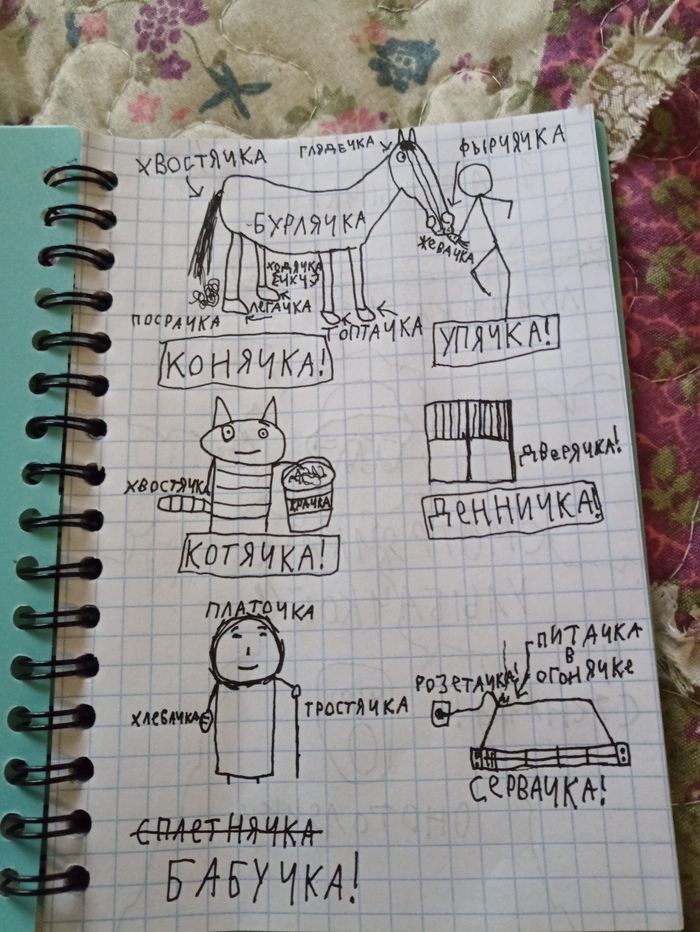 ХВОСТЯЧКА
ГЛЯДЕЧКА
ФЫРЧЯЧКА
БУРЛЯЧКА
ЖЕВАЧКА
ХОДЯЧКА
ЛЕГАЧКА
ПОСРАЧКА
ТОПТАЧКА
КОНЯЧКА!
УПЯЧКА!
ХВОСТЯЧКА
ДВЕРЯЧКА!
КОТЯЧКА!
ДЕННИЧКА!
ПЛАТОЧКА
ХЛЕБАЧКА
ТРОСТЯЧКА
РОЗЕТАЧКА!
ПИТАЧКА
В
ОГОНЯЧКЕ
СЕРВАЧКА!
СПЛЕТНЯЧКА
БАБУЧКА!